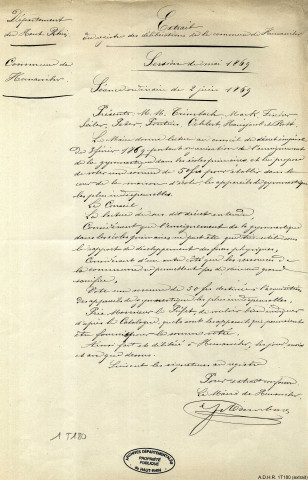 Département
du Haut-Rhin
Commune de
Hunawihr
Extrait
du registre des délibérations de la commune de Hunawihr
Session de mai 1869
Séance ordinaire du 2 juin 1869
Présents M. M.
Le Maire donne lecture au conseil du décret impérial
du 3 février 1869 portant organisation de l'enseignement
de la gymnastique dans les écoles primaires et lui propose
de voter une somme de 50 frs pour établir dans la
cour de la maison d'école les appareils de gymnastique
les plus indispensables.
Le Conseil
La lecture du susdit décret entendu
Considérant que l'enseignement de la gymnastique
dans les écoles primaires
le rapport du développement des forces physiques,
Considérant d'un autre côté que les ressources de
la commune ne permettent pas de faire un grand
sacrifice,
Vote une somme de 50 frs destinée à l'acquisition
des appareils de gymnastique les plus indispensables.
Prie Monsieur le Préfet de vouloir bien indiquer
d'après le Catalogue, quels sont les appareils qui pourraient
être fournis pour la somme votée
Ainsi fait et délibéré à Hunawihr, les jour, mois
et an que dessus.
Suivent les signatures au registre
Pour extrait conforme
Le Maire de Hunawihr
1 T 180
ARCHIVES DÉPARTEMENTALES
PROPRIÉTÉ
PUBLIQUE
DU HAUT-RHIN
A.D.H.R. 1T180 (extrait)